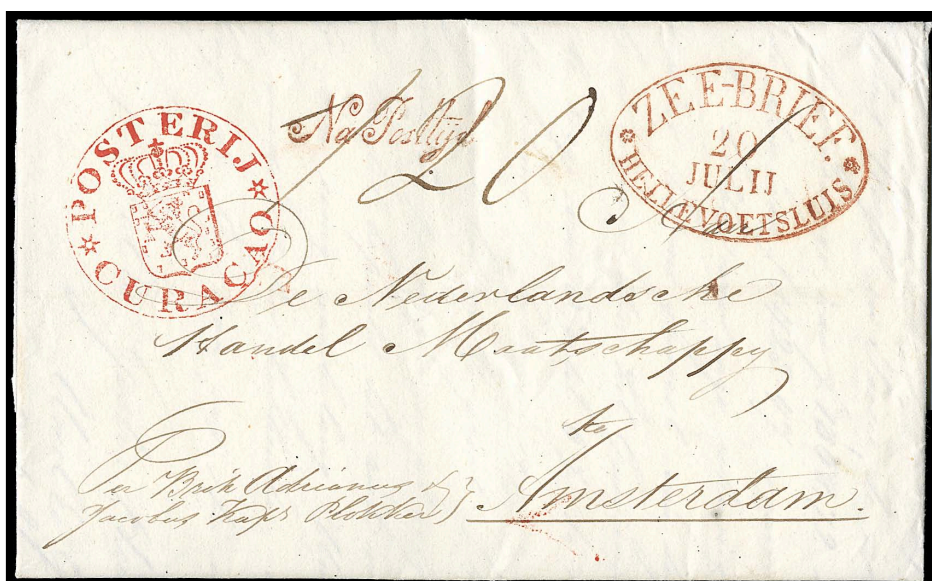 POSTERIJ
CURAÇAO
Na Posttyd
120
ZEE-BRIEF.
20
JULIJ
HELLEVOETSLUIS
Aan
De Nederlandsche
Handel Maatschappy
te
Amsterdam.
Per Brik Adrianus &
Jacobus Kapt Plokker